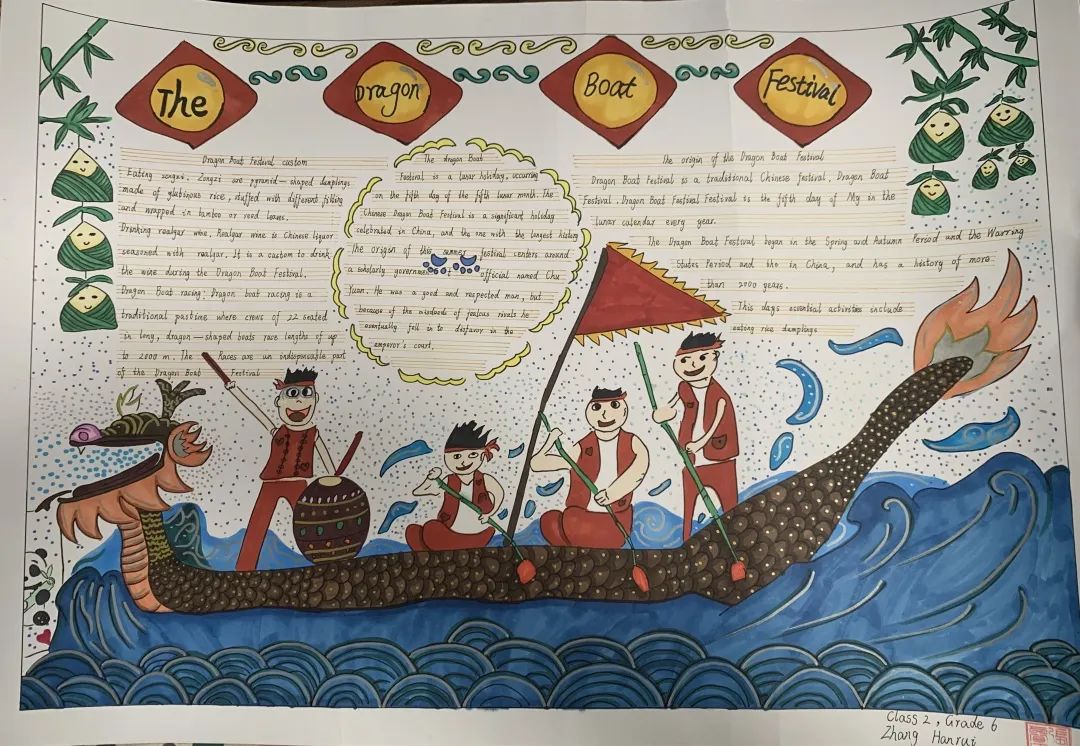 The
Dragon
Boat
Festival
Dragon Boat Festival custom
Eating zongzi. Zongzi are pyramid-shaped dumplings
made of glutinous rice, stuffed with different filling
and wrapped in bamboo or reed leaves.
Drinking realgar wine. Realgar wine is Chinese liquor
seasoned with realgar. It is a custom to drink
the wine during the Dragon Boat Festival.
Dragon Boat racing. Dragon boat racing is a
traditional pastime where crews of 22 seated
in long, dragon-shaped boats race lengths of up
to 2000 m. The Races are an indispensable part
of the Dragon Boat Festival
The dragon Boat
Festival is a lunar holiday, occurring
on the fifth day of the fifth lunar month. The
Chinese Dragon Boat Festival is a significant holiday
celebrated in China, and the one with the longest history
The origin of this summer festival centers around
a scholarly government official named Chu
Yuan. He was a good and respected man, but
because of the misdeeds of jealous rivals he
eventually fell in to disfavor in the
emperor's court.
The origin of the Dragon Boat Festival
Dragon Boat Festival is a traditional Chinese festival, Dragon Boat
Festival, Dragon Boat Festival Festival is the fifth day of My in the
lunar calendar every year.
The Dragon Boat Festival began in the Spring and Autumn Period and the Warring
States Period and in China, and has a history of more
than 2000 years.
This days essential activities include
eating rice dumplings
Class 2, Grade 6
Zhang Hanrui